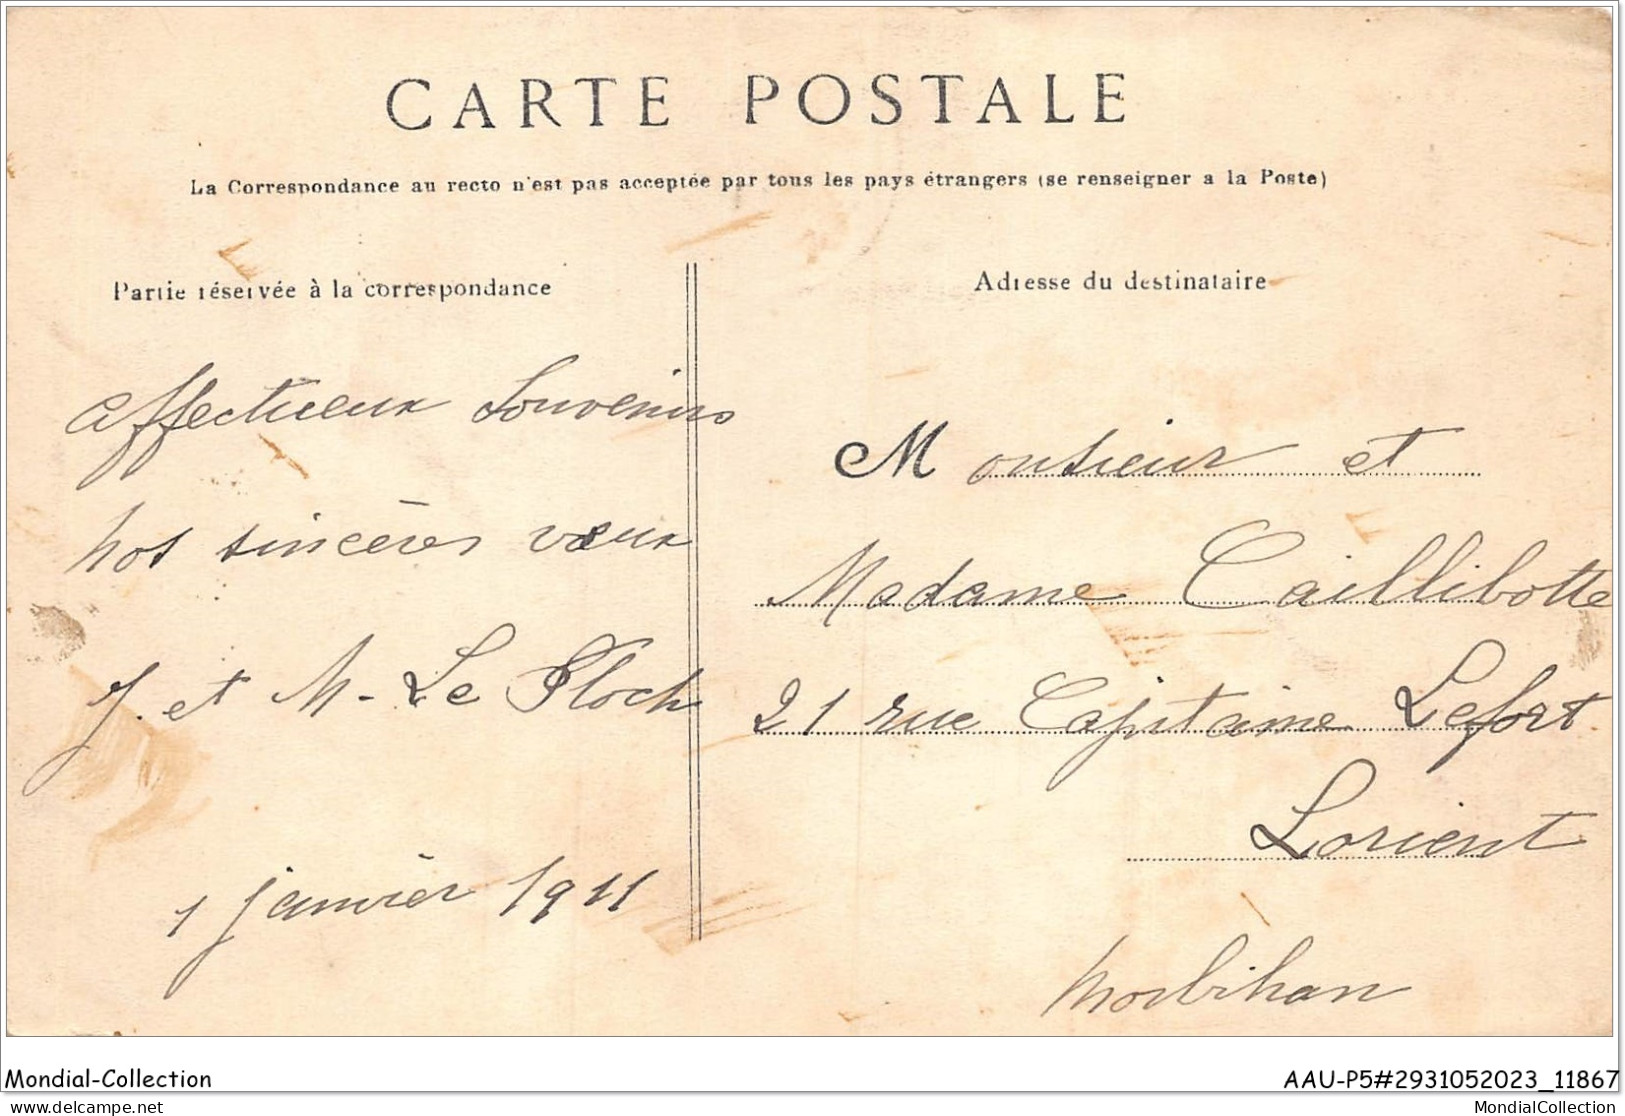 CARTE POSTALE
La Correspondance au recto n'est pas acceptée par tous les pays étrangers (se renseigner a la Poste)
Partie réservée à la correspondance
affectueux souvenirs
nos sincères vœux
J. et M. Le Ploch
1 janvier 1911
Adresse du destinataire
Monsieur et
Madame Caillibotte
21 rue Capitaine Lefort
Lorient
Morbihan
Mondial-Collection
AAU-P5#2931052023_11867
delcampe.net
MondialCollection